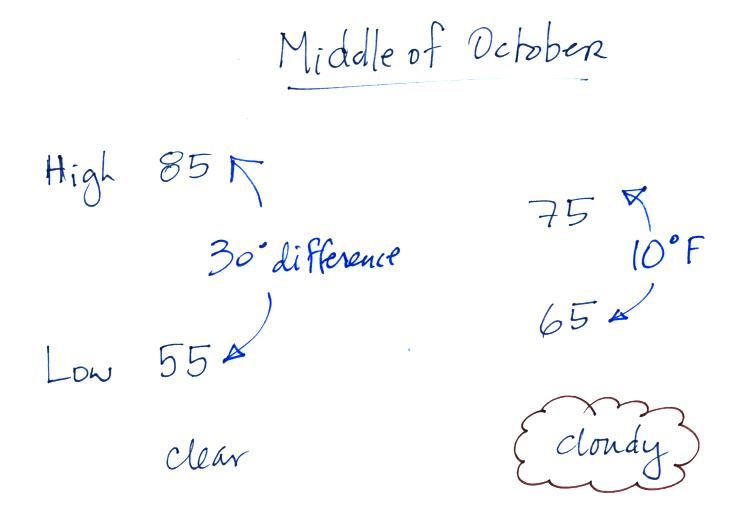 Middle of October
High 85
75
30° difference
10° F
65
Low 55
clear
cloudy